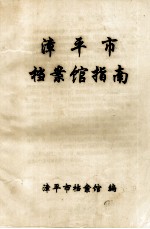 漳平市
档案馆指南
漳平市档案馆 编